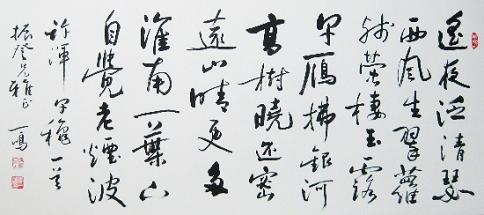 遙夜泛清瑟
西風生翠蘿
殘螢棲玉露
早雁拂銀河
高樹曉還密
遠山晴更多
淮南一葉下
自覺老煙波
許渾 早穐一首
振登兄雅正 一鳴